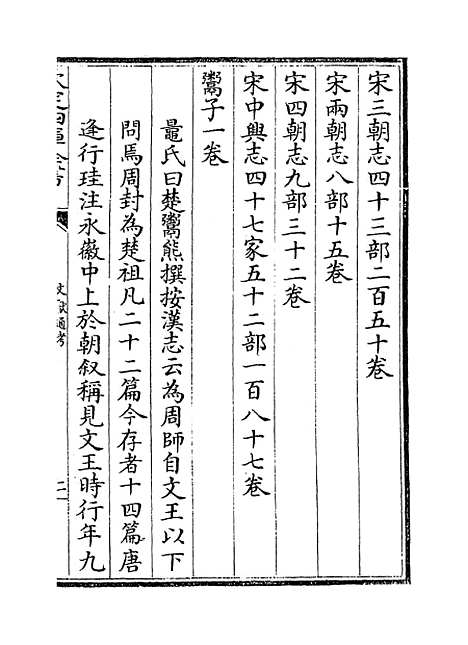 宋三朝志四十三部二百五十卷
宋兩朝志八部十五卷
宋四朝志九部三十二卷
宋中興志四十七家五十二部一百八十七卷
鬻子一卷
鼂氏曰楚鬻熊撰按漢志云為周師自文王以下
問焉周封為楚祖凡二十二篇今存者十四篇唐
逄行珪注永徽中上於朝叙稱見文王時行年九
文獻通考
二